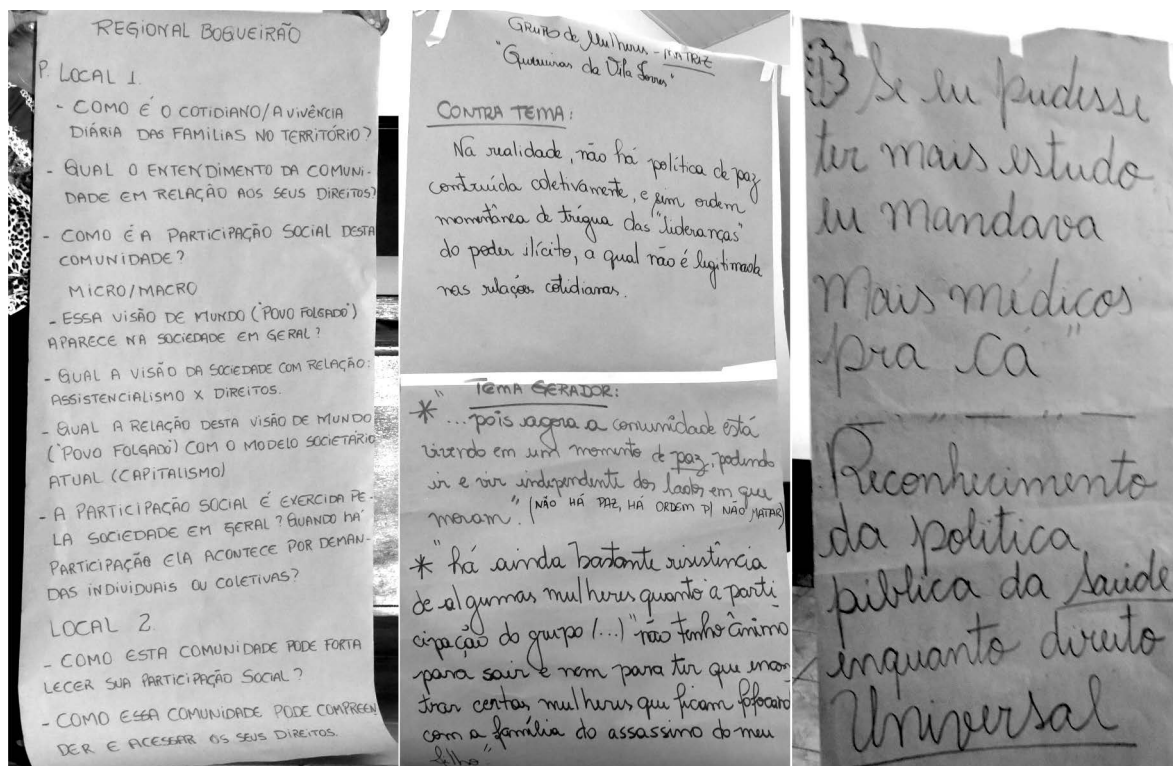 REGIONAL BOQUEIRÃO
P. LOCAL 1.
- COMO É O COTIDIANO/A VIVÊNCIA
DIÁRIA DAS FAMÍLIAS NO TERRITÓRIO?
- QUAL O ENTENDIMENTO DA COMUNI-
DADE EM RELAÇÃO AOS SEUS DIREITOS?
- COMO É A PARTICIPAÇÃO SOCIAL DESTA
COMUNIDADE?
MICRO/MACRO
- ESSA VISÃO DE MUNDO ('POVO FOLGADO')
APARECE NA SOCIEDADE EM GERAL?
- QUAL A VISÃO DA SOCIEDADE COM RELAÇÃO:
ASSISTENCIALISMO X DIREITOS.
- QUAL A RELAÇÃO DESTA VISÃO DE MUNDO
('POVO FOLGADO') COM O MODELO SOCIETÁRIO
ATUAL (CAPITALISMO)
- A PARTICIPAÇÃO SOCIAL É EXERCIDA PE-
LA SOCIEDADE EM GERAL? QUANDO HÁ
PARTICIPAÇÃO ELA ACONTECE POR DEMAN-
DAS INDIVIDUAIS OU COLETIVAS?
LOCAL 2.
- COMO ESTA COMUNIDADE PODE FORTA
LECER SUA PARTICIPAÇÃO SOCIAL?
- COMO ESSA COMUNIDADE PODE COMPREEN
DER E ACESSAR OS SEUS DIREITOS.
Grupo de Mulheres - MATRIZ
"Guerreiras da Vila Torres"
CONTRA TEMA:
Na realidade, não há política de paz
construída coletivamente, e sim ordem
momentânea de trégua das "lideranças"
do poder ilícito, a qual não é legitimada
nas relações cotidianas.
TEMA GERADOR:
* "...pois agora a comunidade está
vivendo em um momento de paz, podendo
ir e vir independente dos lados em que
moram." (NÃO HÁ PAZ, HÁ ORDEM P/ NÃO MATAR)
* "há ainda bastante resistência
de algumas mulheres quanto a parti
cipação do grupo (...) "não tenho ânimo
para sair e nem para ter que encon
trar certas mulheres que ficam fofocando
com a família do assassino do meu
filho"
Se eu pudesse
ter mais estudo
eu mandava
mais médicos
pra cá"
Reconhecimento
da política
pública da saúde
enquanto direito
Universal